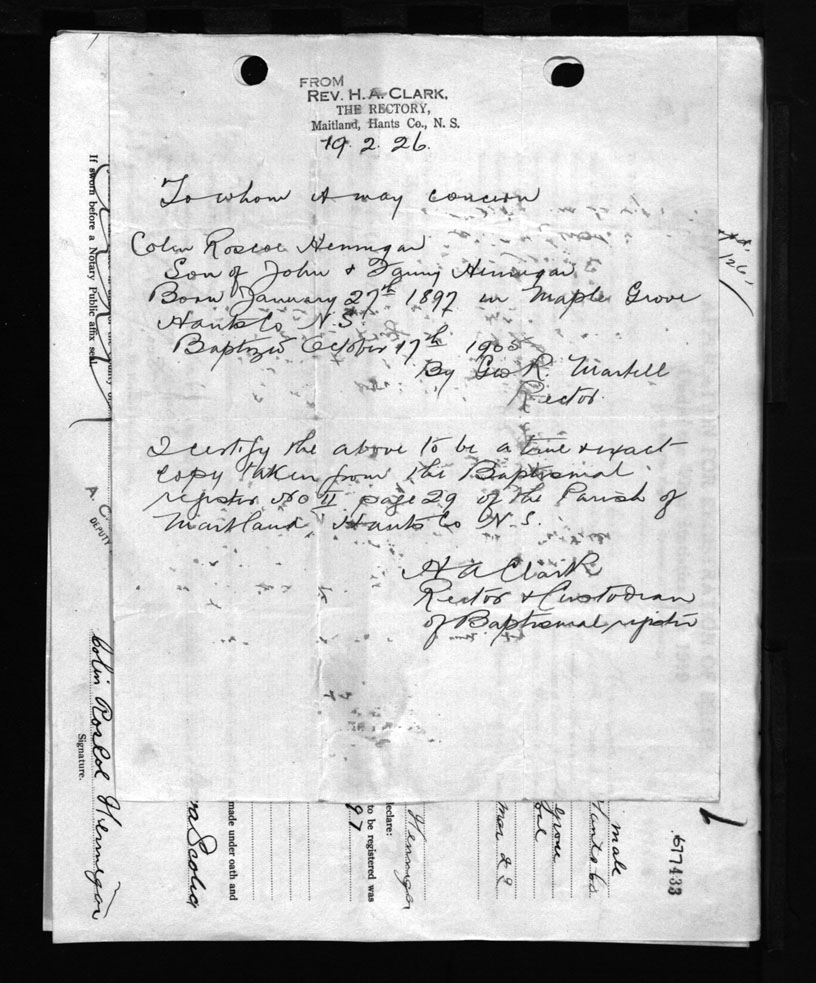 FROM
REV. H. A. CLARK,
THE RECTORY,
Maitland, Hants Co., N. S.
19. 2. 26.
To whom it may concern
Colin Roscoe Hennigar
Son of John & Fanny Hennigar
Born January 27th 1897 in Maple Grove
Hants Co N.S.
Baptized October 17th 1905
By Geo R. Martell
Rector.
I certify the above to be a true & exact
copy taken from the Baptismal
register No II page 29 of the Parish of
Maitland Hants Co N.S.
H A Clark
Rector & Custodian
of Baptismal register
If sworn before a Notary Public affix seal.
A. C.
DEPUTY
Colin Roscoe Hennigar
Signature.
made under oath and
Scotia
declare:
to be registered was
97
Hennigar
Grove
male
Hants Co.
677433